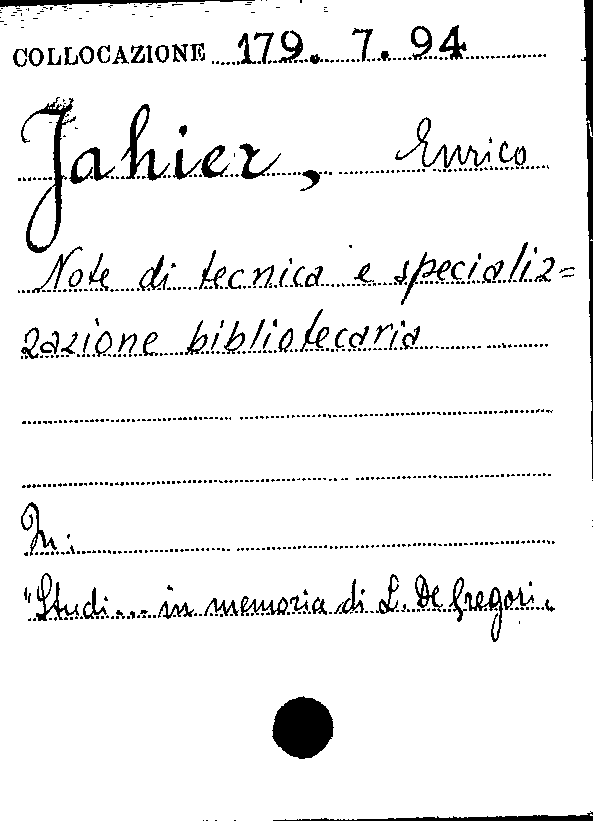 COLLOCAZIONE 179. 7. 94
Jahier, Enrico
Note di tecnica e specializ=
zazione bibliotecaria
In:
"Studi... in memoria di L. De Gregori.